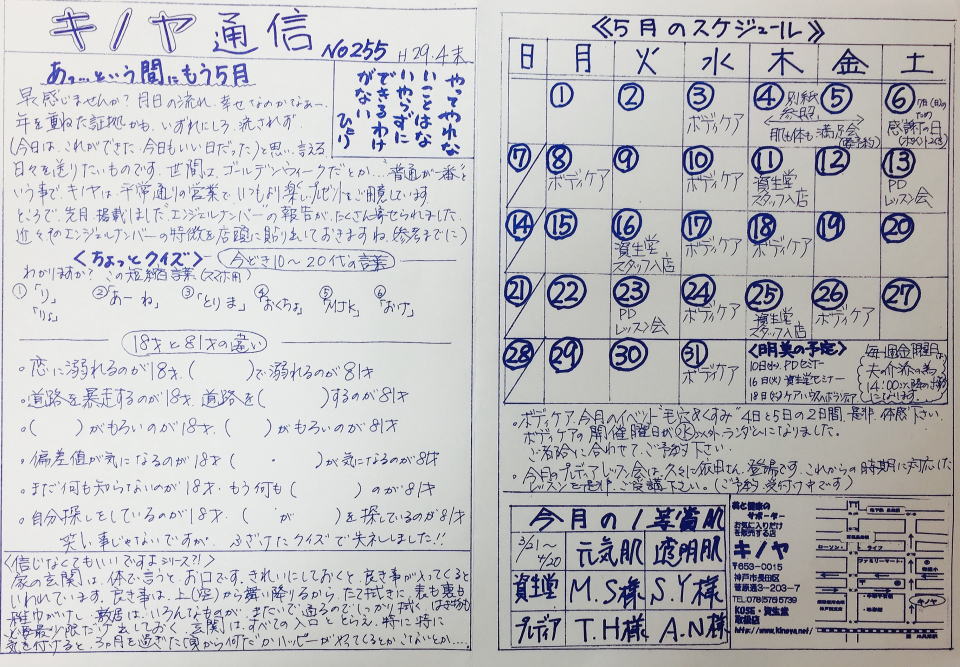 キノヤ通信
No255 H29.4末
あっ…という間にもう5月
やってやれな
いことはな
い やらずに
できるわけ
がない
早く感じませんか? 月日の流れ、幸せなのかなぁー、
年を重ねた証拠かも、いずれにしろ、流されず、
(今日は、これができた、今日もいい日だった)と思い、言える
日々を送りたいものです。世間は、ゴールデンウィークだとか…"普通が一番"と
いう事で、キノヤは、平常通りの営業で、いつもより楽しいプレゼントをご用意しています
ところで、先月、掲載しました"エンジェルナンバー"の報告が、たくさん寄せられました。
近々、そのエンジェルナンバーの特徴を店頭に貼り出しておきますね、参考までに)
<ちょっとクイズ> 今どき10〜20代の言葉
わかりますか? この短縮言葉(スマホ用)
①「り」「りょ」 ②「あーね」 ③「とりま」 ④「おくちょ」 ⑤「MJK」 ⑥「おけ」
18才と81才の違い
・恋に溺れるのが18才、( )で溺れるのが81才
・道路を暴走するのが18才、道路を( )するのが81才
・( )がもろいのが18才、( )がもろいのが81才
・偏差値が気になるのが18才 ( ・ )が気になるのが81才
・まだ何も知らないのが18才、もう何も( )のが81才
・自分探しをしているのが18才、( が )を探しているのが81才
笑い事じゃないですが、ふざけたクイズで失礼しました!!
<信じなくてもいいですよシリーズ?!>
家の玄関は、体で言うと、お口です。きれいにしておくと、良き事が入ってくると
いわれています。良き事は、上(空)から舞い降りるから、たて拭きに、表も裏も
雑巾がけし、敷居は、いろんなものが、またいで通るのでしっかり拭く、はき物も
必要最少限だけ出しておく。玄関は、すべての入口ととらえ、特に特に
気を付けると、3ヵ月を過ぎた頃から何だかハッピーがやってくるとかこないとか…
≪5月のスケジュール≫
日 月 火 水 木 金 土
① ② ③ ④ ⑤ ⑥
ボディケア
別紙参照
肌も体も満足会(要予約)
7日(日)のため
感謝の日
(ポイント2倍)
⑦ ⑧ ⑨ ⑩ ⑪ ⑫ ⑬
ボディケア
ボディケア
資生堂スタッフ入店
PDレッスン会
⑭ ⑮ ⑯ ⑰ ⑱ ⑲ ⑳
資生堂スタッフ入店
ボディケア
ボディケア
㉑ ㉒ ㉓ ㉔ ㉕ ㉖ ㉗
PDレッスン会
ボディケア
資生堂スタッフ入店
ボディケア
㉘ ㉙ ㉚ ㉛
ボディケア
<明美の予定>
10日(水) PDセミナー
16日(火) 資生堂セミナー
18日(木) ケアハウスボランティア
毎週金曜日は
夫の介添の為
14:00以降の
になります。
・ボディケア、今月のイベント"毛穴&くすみ"4日と5日の2日間、是非、体感下さい。
ボディケアの開催曜日が㊌以外ランダムになりました。
ご都合に合わせて、ご予約下さい。
・今月のプレディアレッスン会は、久々に依田さん、登場です。これからの時期に対応した
レッスンを是非、ご受講下さい。(ご予約、受付け中です)
今月の1等賞肌
3/21〜4/20 元気肌 透明肌
資生堂 M.S様 S.Y様
プレディア T.H様 A.N様
美と健康の
サポーター
お気に入りだけ
を販売する店
キノヤ
〒653-0015
神戸市長田区
菅原通3-203-7
TEL.078)575-5739
KOSE・資生堂
取扱店
http://www.kinoya.net/
ローソン
ライフ
ファミリーマート
キノヤ